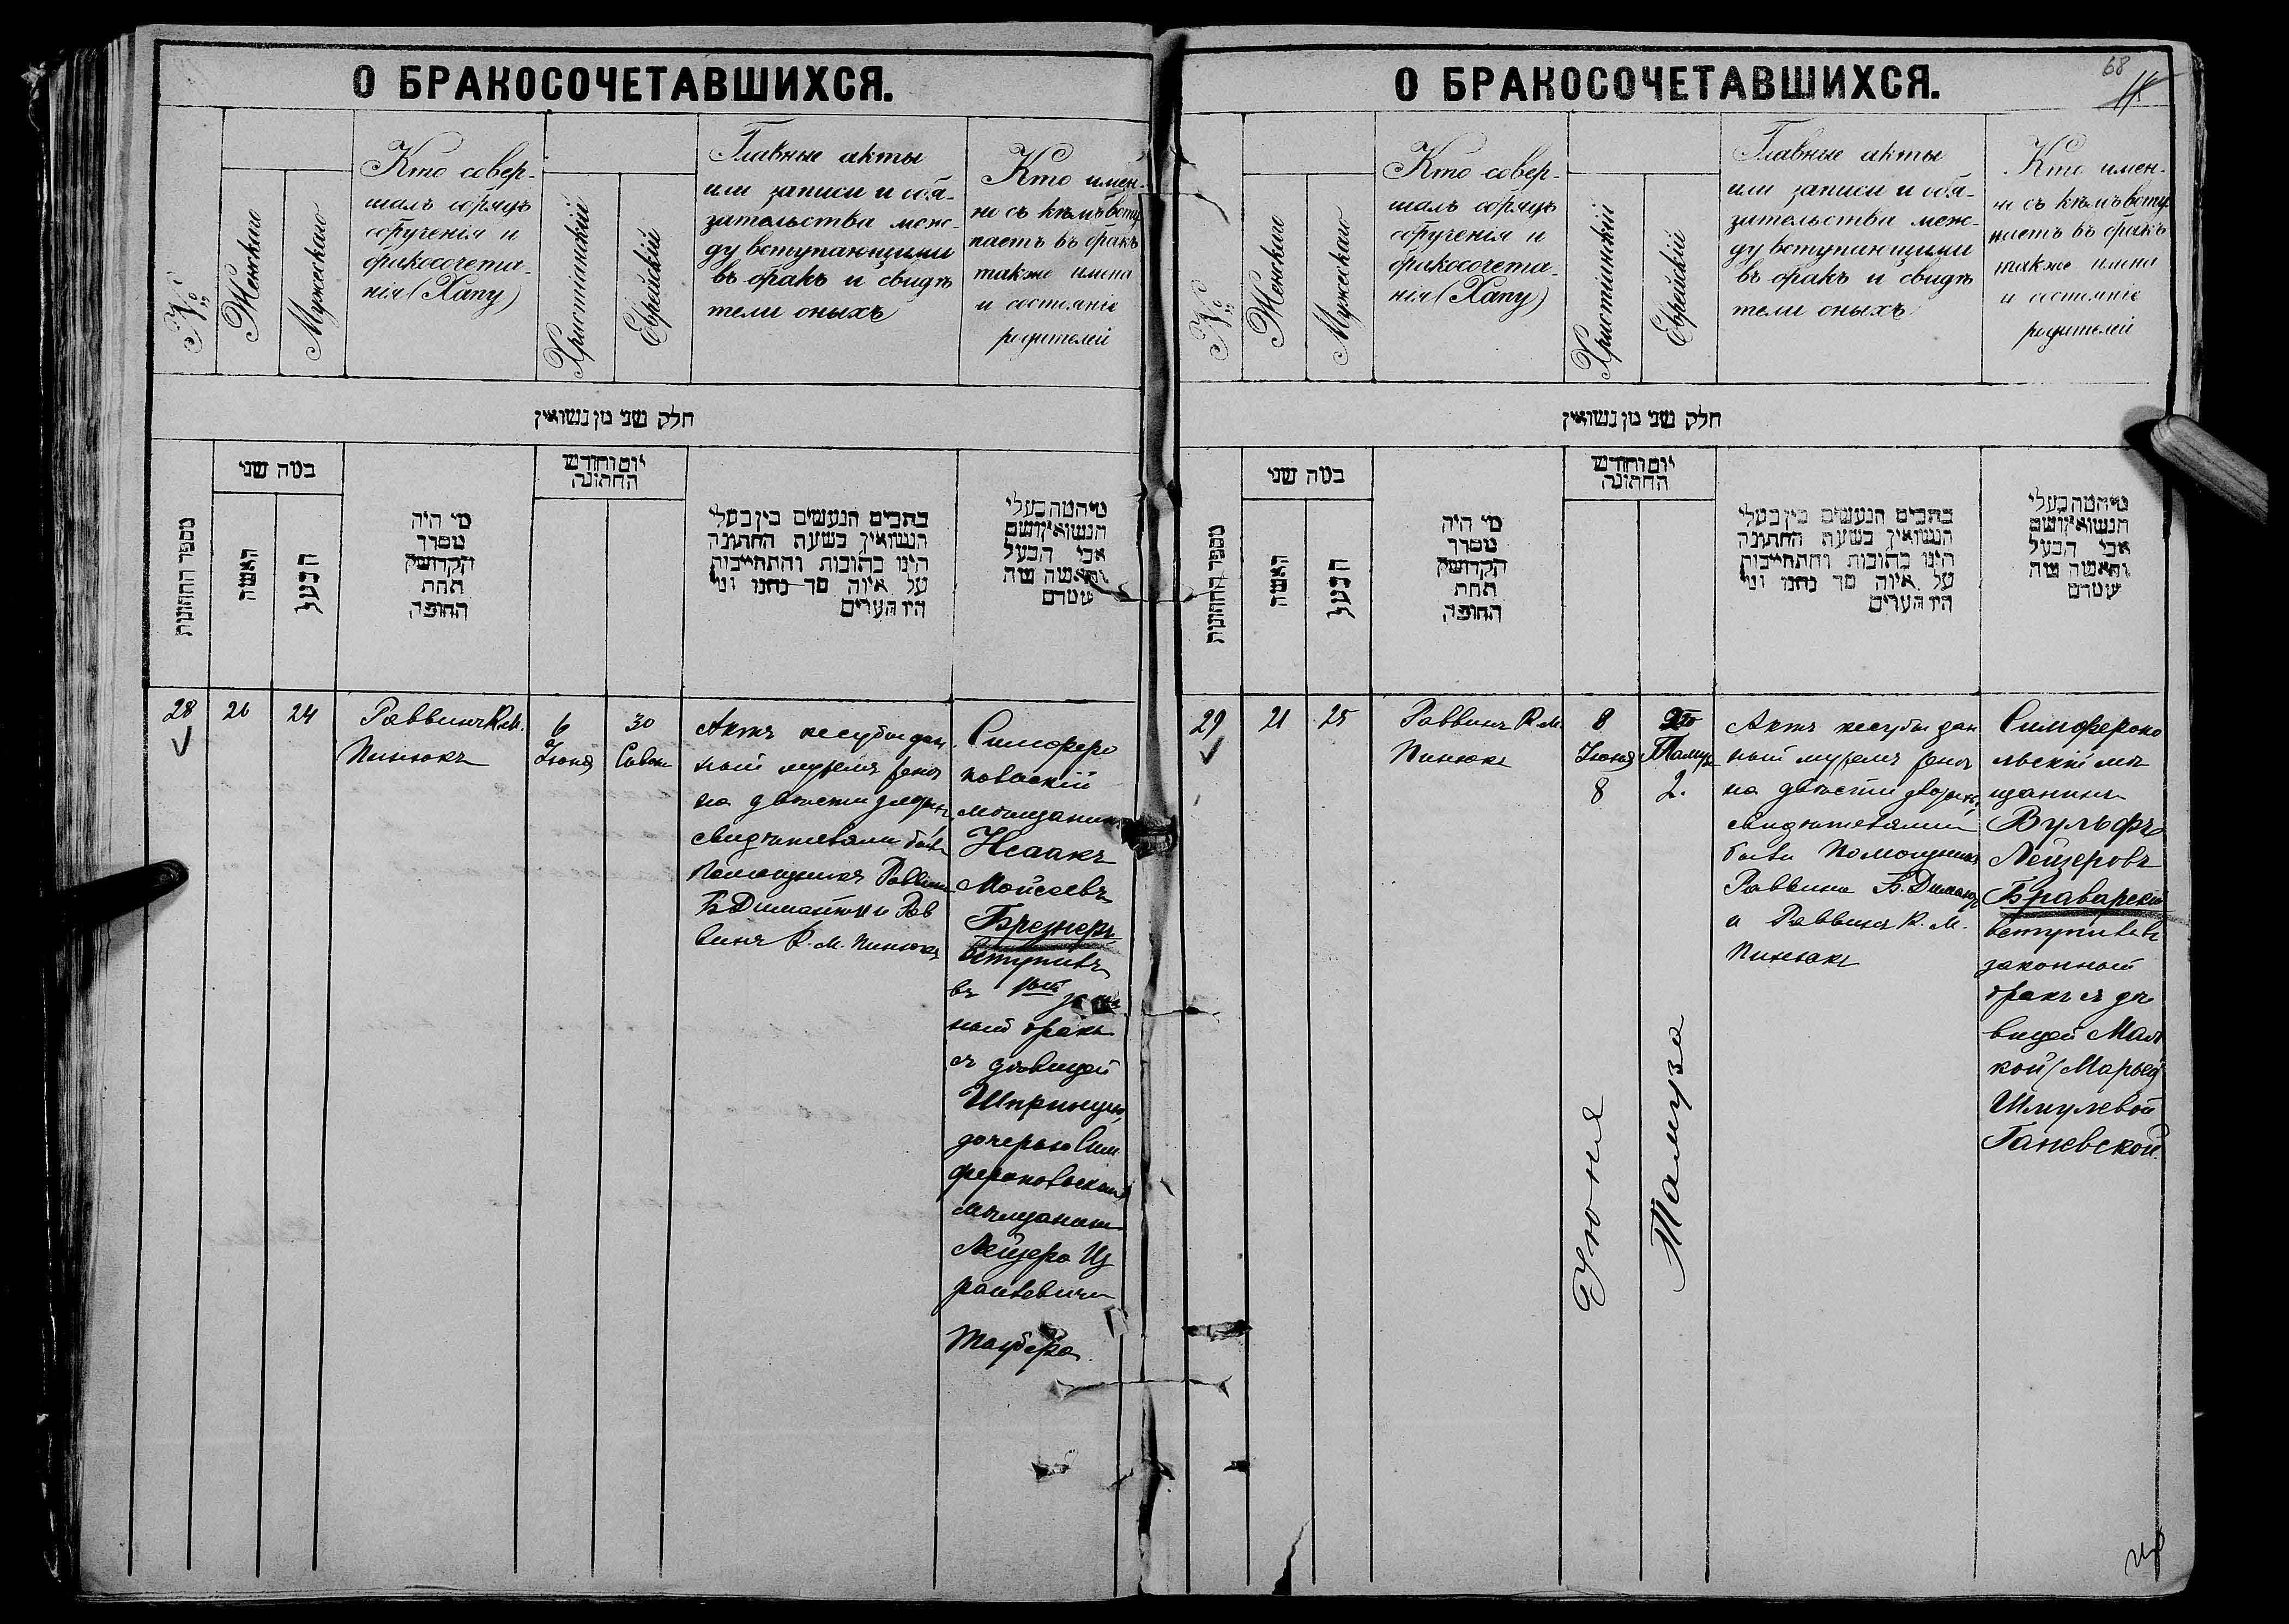 О БРАКОСОЧЕТАВШИХСЯ.
№
Женскаго
Мужескаго
Кто совер-
шалъ обрядъ
обрученія и
бракосочета-
нія (Хапу)
Христіанскій
Еврейскій
Главные акты
или записи и обя-
зательства меж-
ду вступающими
въ бракъ и свидѣ
тели оныхъ
Кто имен-
но съ кѣмъ всту
паетъ въ бракъ
также имена
и состояніе
родителей
חלק שני מן נשואין
מספר החתונות
במה שני
האשה
הבעל
מי היה
מסדר
הקדושין
תחת
החופה
יום וחודש
החתונה
כתבים הנעשים בין בעלי
הנשואין בשעת החתונה
היינו כתובות והתחייבות
על איזה סך נתנו ומי
היו העדים
מי המה בעלי
הנשואין ושם
אבי הבעל
והאשה ומה
שטדם
28
26
24
Раввинъ К.М.
Пинюкъ
6
Іюня
30
Сивонъ
Актъ кесубы дан
ный мужемъ женѣ
на двѣсти злотъ
свидѣтелями были
Помощникъ Раввина
Б Димантъ и Рав
винъ К. М. Пинюкъ
Симферо
польскій
мѣщанинъ
Исаакъ
Мойсеевъ
Брезнеръ
вступилъ
въ 1ый
ный бракъ
съ дѣвицей
Шпринцею,
дочерью Сим
феропольскаго
мѣщанина
Лейзера Из
раилевича
Таубера
О БРАКОСОЧЕТАВШИХСЯ.
68
№
Женскаго
Мужескаго
Кто совер-
шалъ обрядъ
обрученія и
бракосочета-
нія (Хапу)
Христіанскій
Еврейскій
Главные акты
или записи и обя-
зательства меж-
ду вступающими
въ бракъ и свидѣ
тели оныхъ
Кто имен-
но съ кѣмъ всту
паетъ въ бракъ
также имена
и состояніе
родителей
חלק שני מן נשואין
מספר החתונות
במה שני
האשה
הבעל
מי היה
מסדר
הקדושין
תחת
החופה
יום וחודש
החתונה
כתבים הנעשים בין בעלי
הנשואין בשעת החתונה
היינו כתובות והתחייבות
על איזה סך נתנו ומי
היו העדים
מי המה בעלי
הנשואין ושם
אבי הבעל
והאשה ומה
שטדם
29
21
25
Раввинъ К. М.
Пинюкъ
8
Іюня
8
Тамуза
2.
Іюня
Тамуза
Актъ кесубы дан
ный мужемъ женѣ
на двѣсти злотъ,
свидѣтелями
были Помощникъ
Раввина Б. Димантъ
и Раввинъ К. М.
Пинюкъ
Симферопо
льскій мѣ
щанинъ
Вульфъ
Лейзеровъ
Браварскій
вступилъ въ
законный
бракъ съ дѣ
вицей Мал
кой (Марьей)
Шмулевой
Ганевской.